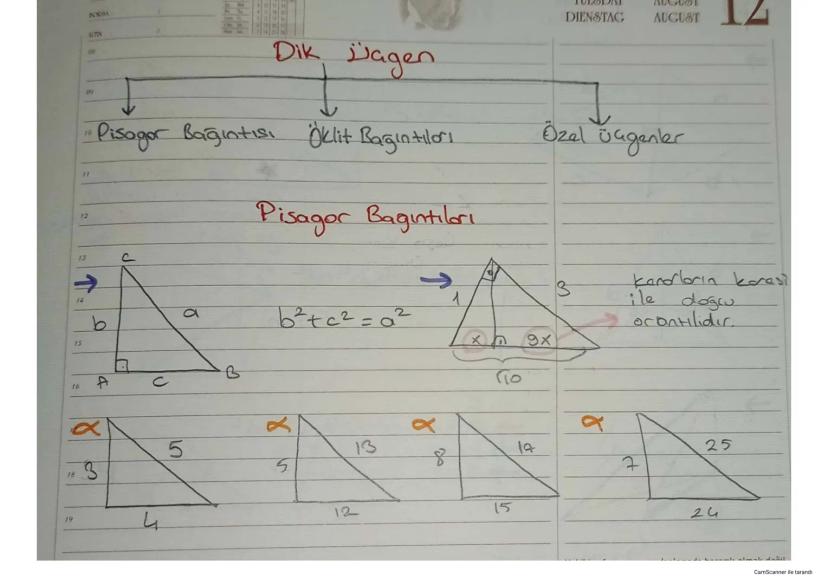 DIENSTAG AUGUST 12
Dik üçgen
Pisagor Bağıntısı Öklit Bağıntıları Özel üçgenler
Pisagor Bağıntıları
C
b
a
A
c
B
b²+c²=a²
1
3
x
9x
√10
Kenarların karesi
ile doğru
orantılıdır.
α
3
5
4
α
5
13
12
α
8
17
15
α
7
25
24
CamScanner ile tarandı